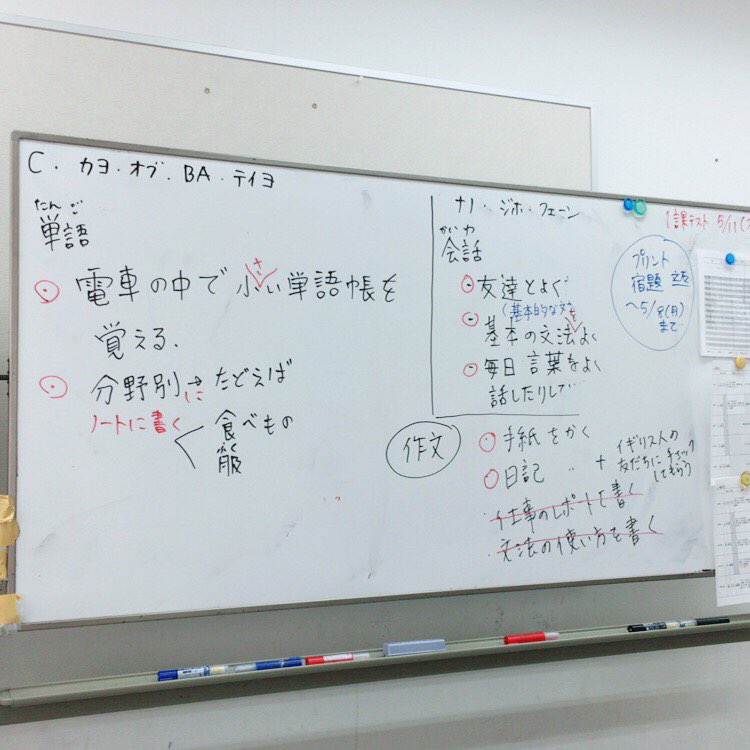 C. カヨ・オブ・BA・テイヨ
たんご
単語
さ
電車の中で小い単語帳を
覚える.
分野別→たどえば
に
ノートに書く
食べもの
ふく
服
ナノ・ジホ・フェーン
かいわ
会話
友達とよく
(基本的な文を
基本の文法よく
毎日言葉をよく
話したりして
作文
手紙をかく
日記 〃 + イギリス人の
友だちにチェック
してもらう
仕事のレポートを書く
文法の使い方を書く
1課テスト 5/11(
プリント
宿題
~5/8(月)
まで